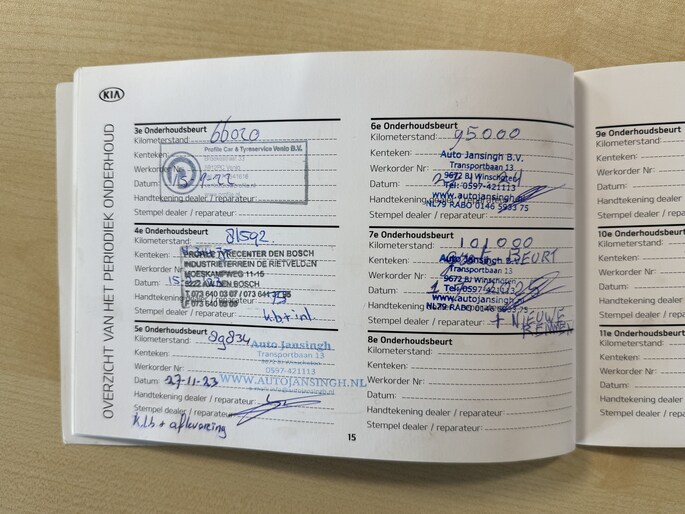 KIA
OVERZICHT VAN HET PERIODIEK ONDERHOUD
3e Onderhoudsbeurt
Kilometerstand: 66020
Kenteken:
Profile Car & Tyreservice Venlo B.V.
Werkorder Nr:
Datum:
Handtekening dealer / reparateur:
Stempel dealer / reparateur:
4e Onderhoudsbeurt
Kilometerstand: 81592
Kenteken:
PROFILE TYRECENTER DEN BOSCH
INDUSTRIETERREIN DE RIETVELDEN
Werkorder Nr:
MOESKAMPWEG 11-15
Datum:
5222 AW DEN BOSCH
Handtekening
T 073 640 03 07 / 073 644
F 073 640 00 09
Stempel dealer / reparateur:
5e Onderhoudsbeurt
Kilometerstand: 89834
Auto Jansingh
Transportbaan 13
Kenteken:
Werkorder Nr:
0597-421113
Datum: 27-11-23
WWW.AUTOJANSINGH.NL
Handtekening dealer / reparateur:
Stempel dealer / reparateur:
+ aflevering
15
6e Onderhoudsbeurt
Kilometerstand: 95000
Kenteken:
Auto Jansingh B.V.
Transportbaan 13
Werkorder Nr:
9672 BJ Winschoten
Datum:
Tel: 0597-421113
www.autojansingh.nl
Handtekening dealer / reparateur:
NL79 RABO 0146 5933 75
Stempel dealer / reparateur:
7e Onderhoudsbeurt
Kilometerstand: 101000
Kenteken: BEURT
Auto Jansingh B.V.
Transportbaan 13
Werkorder Nr:
9672 BJ Winschoten
Datum:
Tel: 0597-421113
www.autojansingh.nl
Handtekening
NL79 RABO 0146 5933 75
Stempel dealer / reparateur: + NIEUWE
8e Onderhoudsbeurt
Kilometerstand:
Kenteken:
Werkorder Nr:
Datum:
Handtekening dealer / reparateur:
Stempel dealer / reparateur:
9e Onderhoudsbeurt
Kilometerstand:
Kenteken:
Werkorder Nr:
Datum:
Handtekening
Stempel
10e Onderhoudsbeurt
Kilometerstand:
Kenteken:
Werkorder Nr:
Datum:
Handtekening
Stempel
11e Onderhoudsbeurt
Kilometerstand:
Kenteken:
Werkorder Nr:
Datum:
Handtekening
Stempel